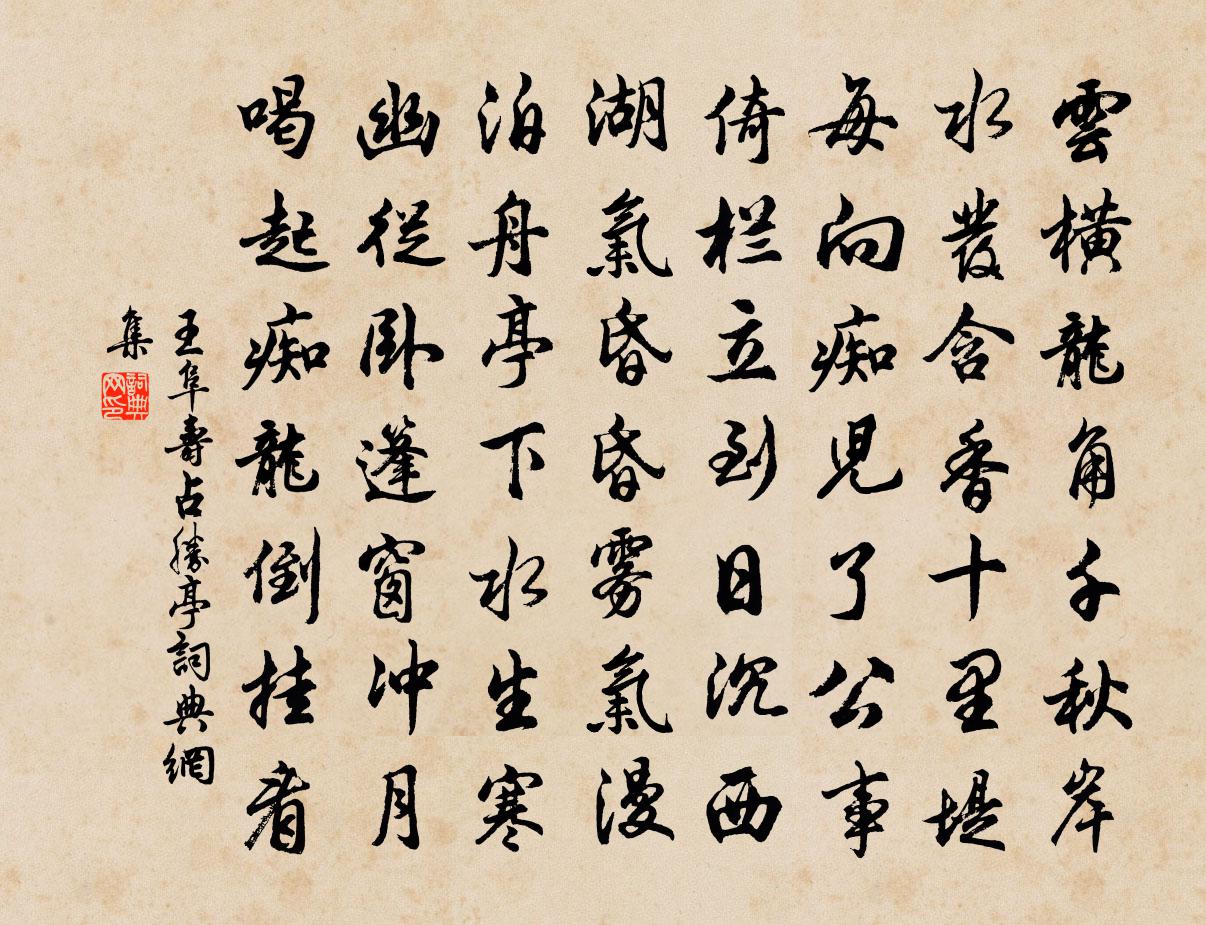 雲橫龍角千秋岸
水發含香十里堤
每向痴兒了公事
倚栏立到日沉西
湖氣昏昏雾氣漫
泊舟亭下水生寒
幽從卧蓬窗冲月
喝起痴龍倒挂看
王阜壽占勝亭詞典網
集
詞典网印